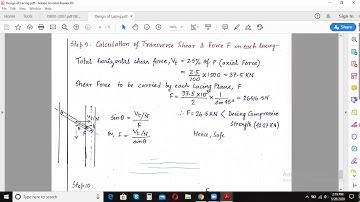 Design of Lacing.pdf - Adobe Acrobat Reader DC
File Edit View Window Help
Home Tools
Design of Lacing.pdf
Step 9: Calculation of Transverse Shear & Force F in each Lacing-
Total horizontal shear force, Vt = 2.5% of P (axial Force)
= 2.5/100 × 1500 = 37.5 KN
Shear Force to be carried by each Lacing Plane, F
F = 37.5×10³/2 × 1/sin 45°
sinθ = (Vt/N)/F
∴ F = 26.5 KN < Desing Compressive
Strength
or, F = (Vt/N)/sinθ
Hence, Safe
Step 10:
5/20/2020